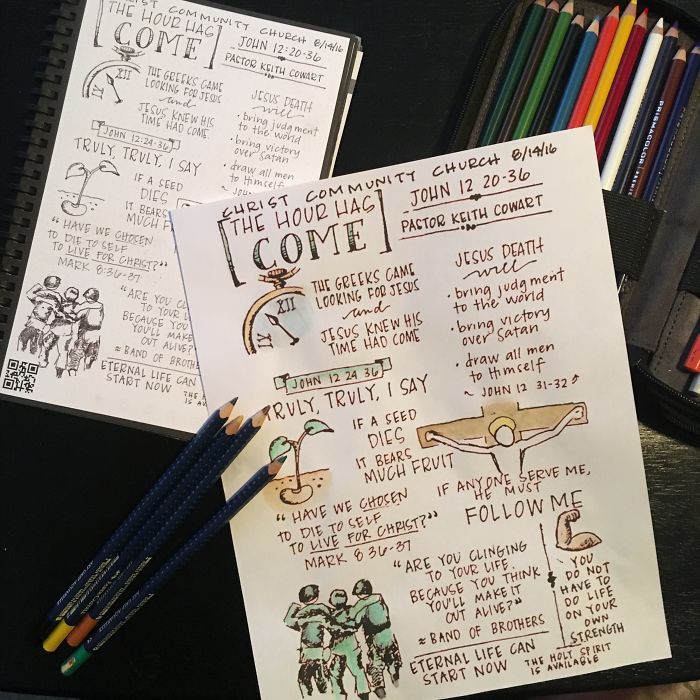 CHRIST COMMUNITY CHURCH 8/14/16
THE HOUR HAS
COME
JOHN 12:20-36
PASTOR KEITH COWART
XII
THE GREEKS CAME
LOOKING FOR JESUS
and
JESUS KNEW HIS
TIME HAD COME
JESUS DEATH
will
• bring judgment
to the world
• bring victory
over Satan
• draw all men
to Himself
~ JOHN
JOHN 12:24-36
TRULY, TRULY, I SAY
IF A SEED
DIES
IT BEARS
MUCH FRUIT
"HAVE WE CHOSEN
TO DIE TO SELF
TO LIVE FOR CHRIST?"
MARK 8:36-37
"ARE YOU CLINGING
TO YOUR LIFE
BECAUSE YOU
YOU'LL MAKE
OUT ALIVE?
≈ BAND OF BROTHERS
ETERNAL LIFE CAN
START NOW
CHRIST COMMUNITY CHURCH 8/14/16
THE HOUR HAS
COME
JOHN 12 20-36
PASTOR KEITH COWART
XII
THE GREEKS CAME
LOOKING FOR JESUS
and
JESUS KNEW HIS
TIME HAD COME
JESUS DEATH
will
• bring judgment
to the world
• bring victory
over Satan
• draw all men
to Himself
~ JOHN 12 31-32
JOHN 12 24 36
TRULY, TRULY, I SAY
IF A SEED
DIES
IT BEARS
MUCH FRUIT
IF ANYONE SERVE ME,
HE MUST
FOLLOW ME
"HAVE WE CHOSEN
TO DIE TO SELF
TO LIVE FOR CHRIST?"
MARK 8 36-37
"ARE YOU CLINGING
TO YOUR LIFE,
BECAUSE YOU THINK
YOU'LL MAKE IT
OUT ALIVE?"
≈ BAND OF BROTHERS
ETERNAL LIFE CAN
START NOW
~ YOU
DO NOT
HAVE TO
DO LIFE
ON YOUR
OWN
STRENGTH
THE HOLY SPIRIT
IS AVAILABLE
PRISMACOLOR